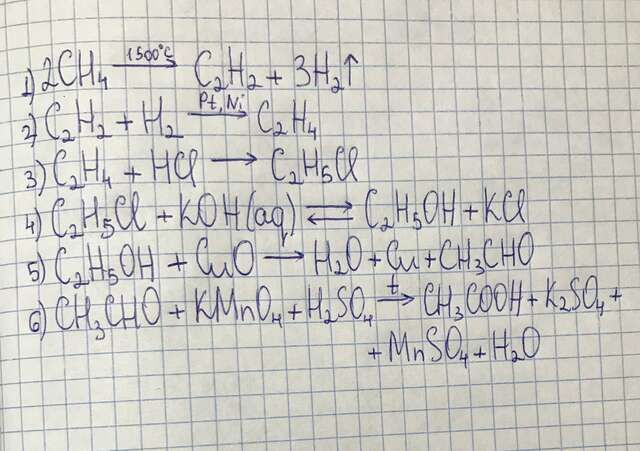 1) 2CH₄ —1500°C→ C₂H₂ + 3H₂↑
2) C₂H₂ + H₂ —Pt, Ni→ C₂H₄
3) C₂H₄ + HCl → C₂H₅Cl
4) C₂H₅Cl + KOH(aq) ⇌ C₂H₅OH + KCl
5) C₂H₅OH + CuO → H₂O + Cu + CH₃CHO
6) CH₃CHO + KMnO₄ + H₂SO₄ —t→ CH₃COOH + K₂SO₄ +
+ MnSO₄ + H₂O